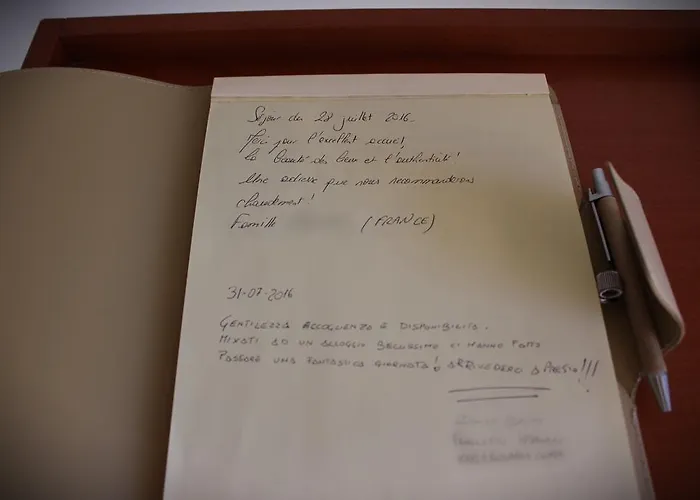 Séjour du 28 juillet 2016.
Merci pour l'excellent accueil,
la beauté des lieux et l'authenticité!
Une adresse que nous recommanderons
chaudement!
Famille (FRANCE)
31-07-2016
GENTILEZZA ACCOGLIENZA E DISPONIBILITÀ.
MIXATI AD UN ALLOGGIO BELLISSIMO CI HANNO FATTO
PASSARE UNA FANTASTICA GIORNATA! ARRIVEDERCI A PRESTO!!!